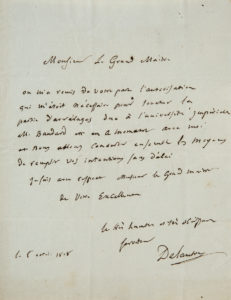 Monsieur Le Grand Maître
on m'a remis de votre part l'autorisation
qui m'était nécessaire pour toucher la
partie d'arrérages due à l'université impériale
M. Baudard est en ce moment avec moi
et nous allons concerter ensemble les moyens
de remplir vos intentions sans délai
Je suis avec respect Monsieur le Grand maître
de Votre Excellence
le très humble et très obéissant
serviteur